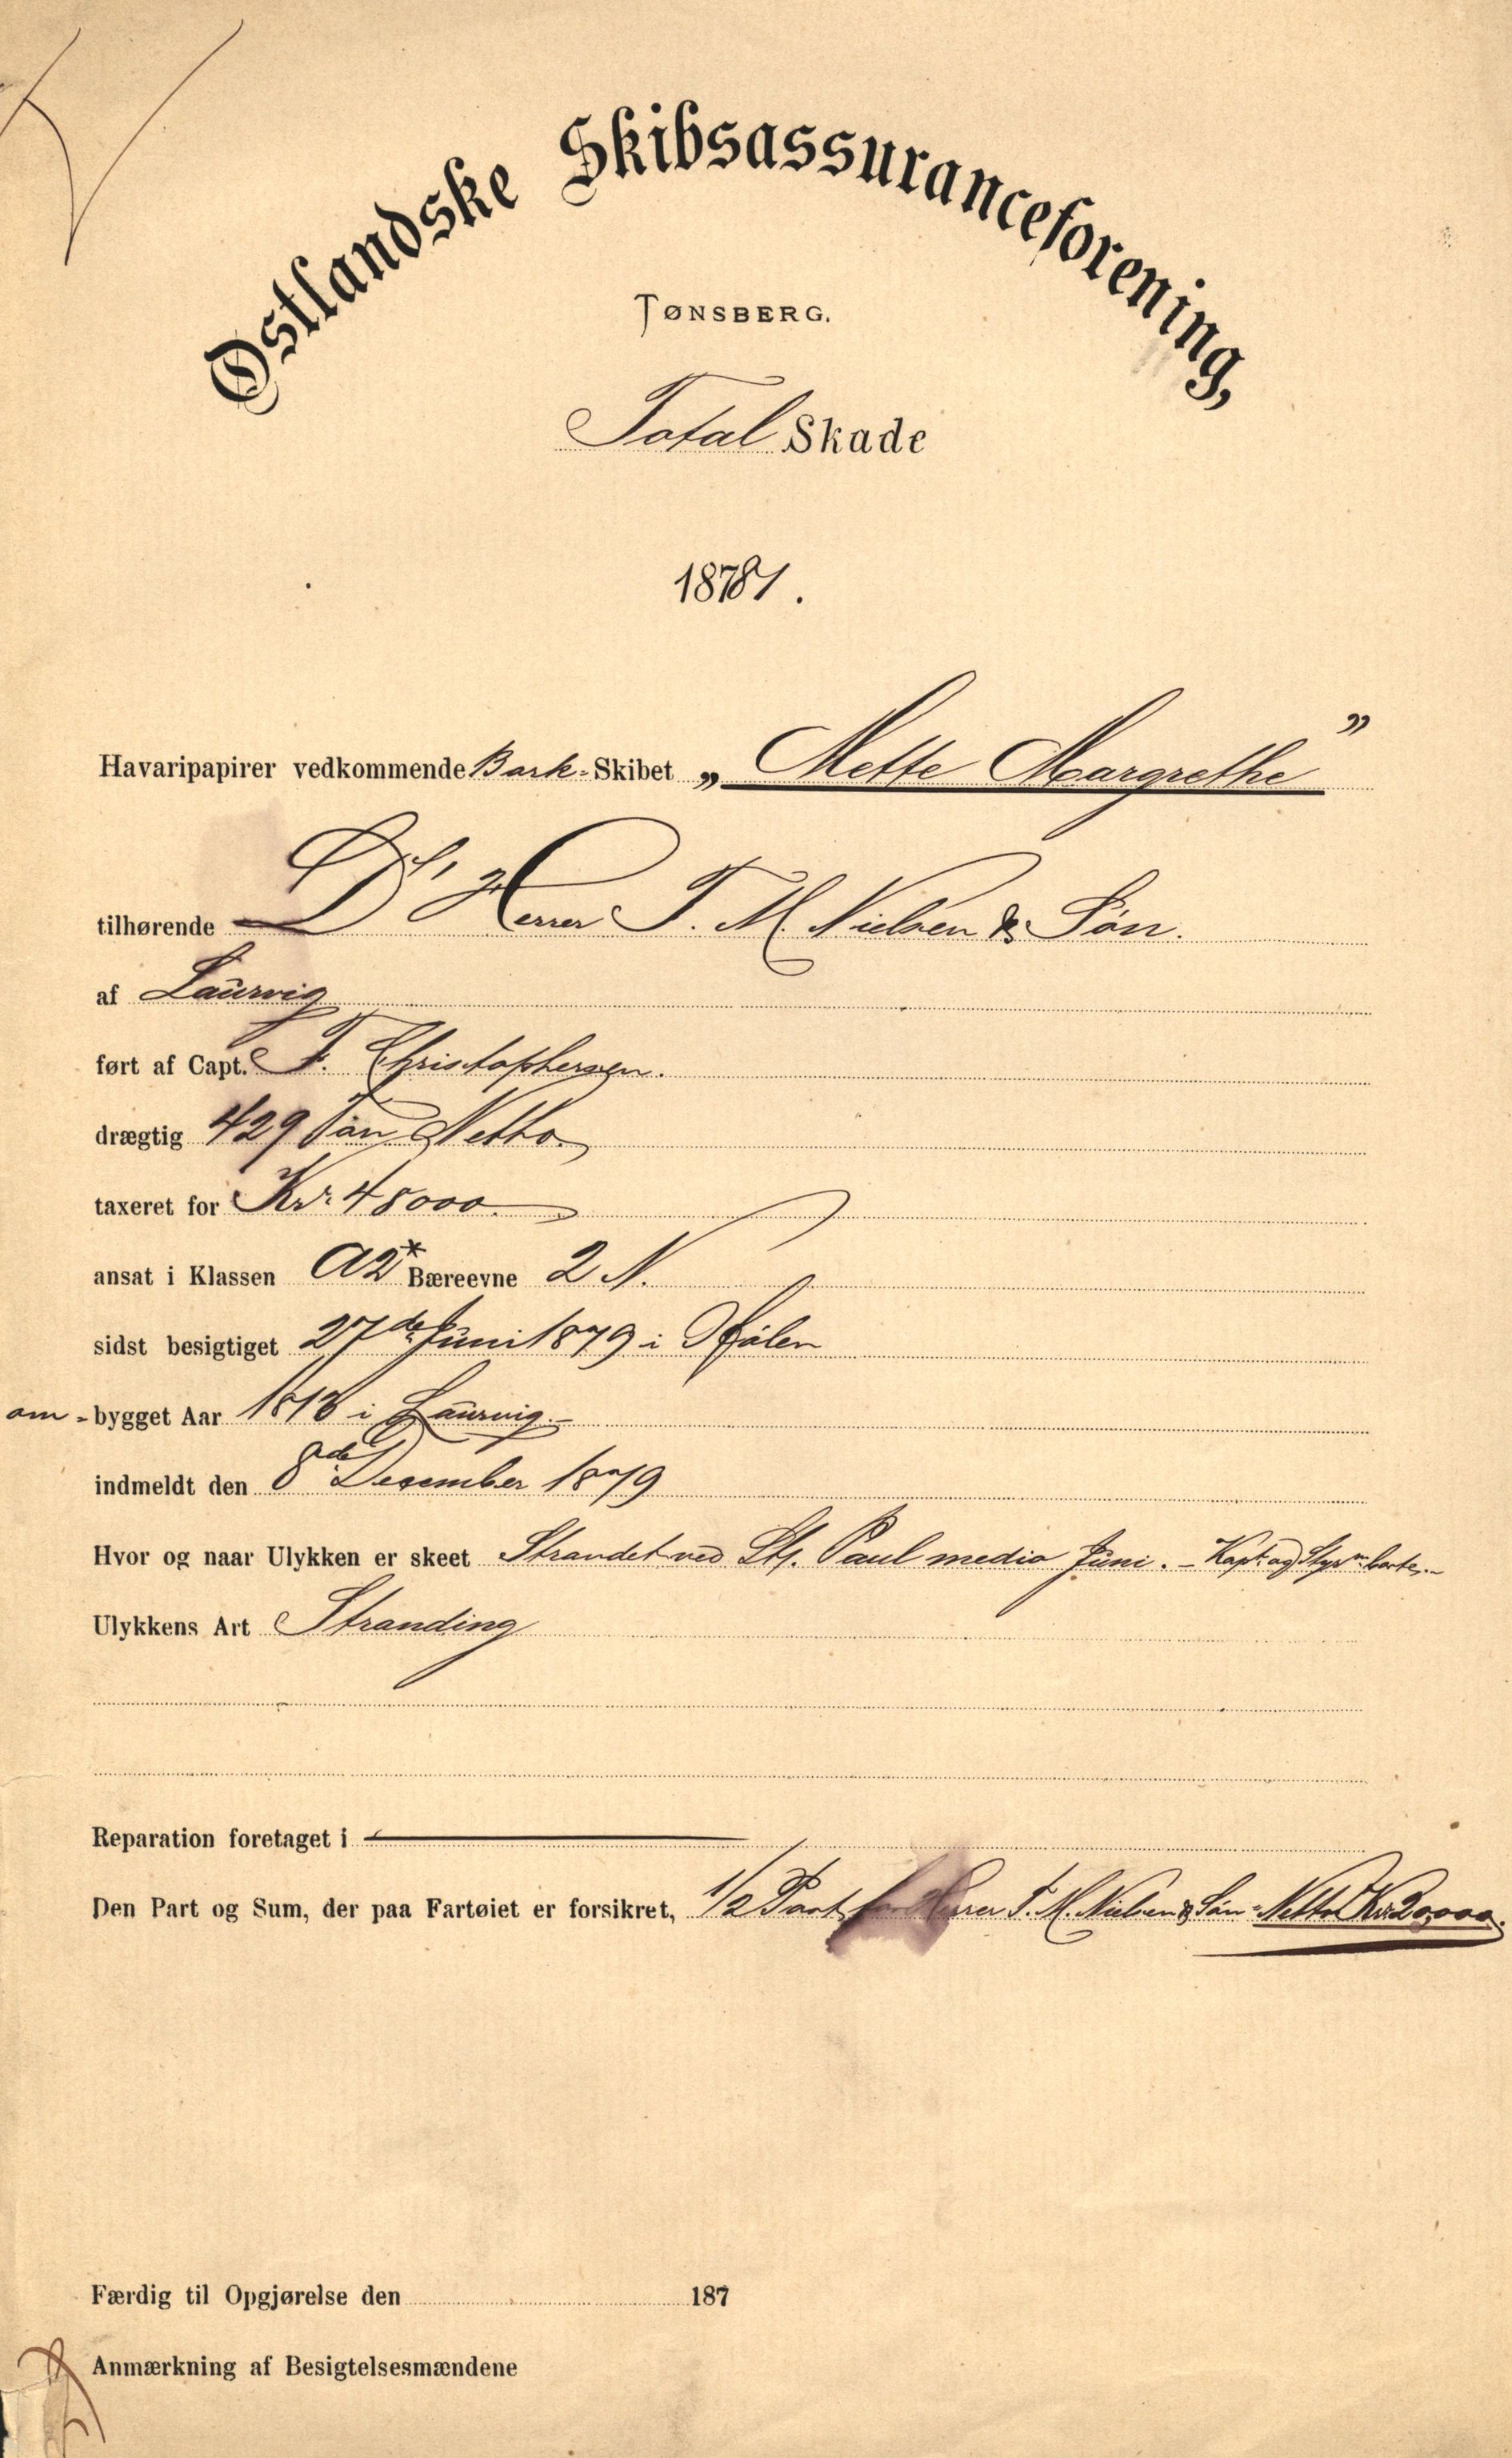 Østlandske Skibsassuranceforening,
TØNSBERG.
Total Skade
1881.
Havaripapirer vedkommende Bark-Skibet „Mette Margrethe”
tilhørende D'Hrr Herrer T. M. Nielsen & Søn.
af Laurvig
ført af Capt. F. Christophersen.
drægtig 429 Ton Netto.
taxeret for Kr. 48000.
ansat i Klassen A2* Bæreevne 2 N.
sidst besigtiget 27de Juni 1879 i
om-bygget Aar i Laurvig.-
indmeldt den 8de December 1879
Hvor og naar Ulykken er skeet Strandet ved St. Paul medio Juni. - Kapt. og Styrm. borte.-
Ulykkens Art Stranding
Reparation foretaget i —
Den Part og Sum, der paa Fartøiet er forsikret, 1/2 Part for Herrer T. M. Nielsen & Søn - Netto Kr. 20,000.
Færdig til Opgjørelse den 187
Anmærkning af Besigtelsesmændene